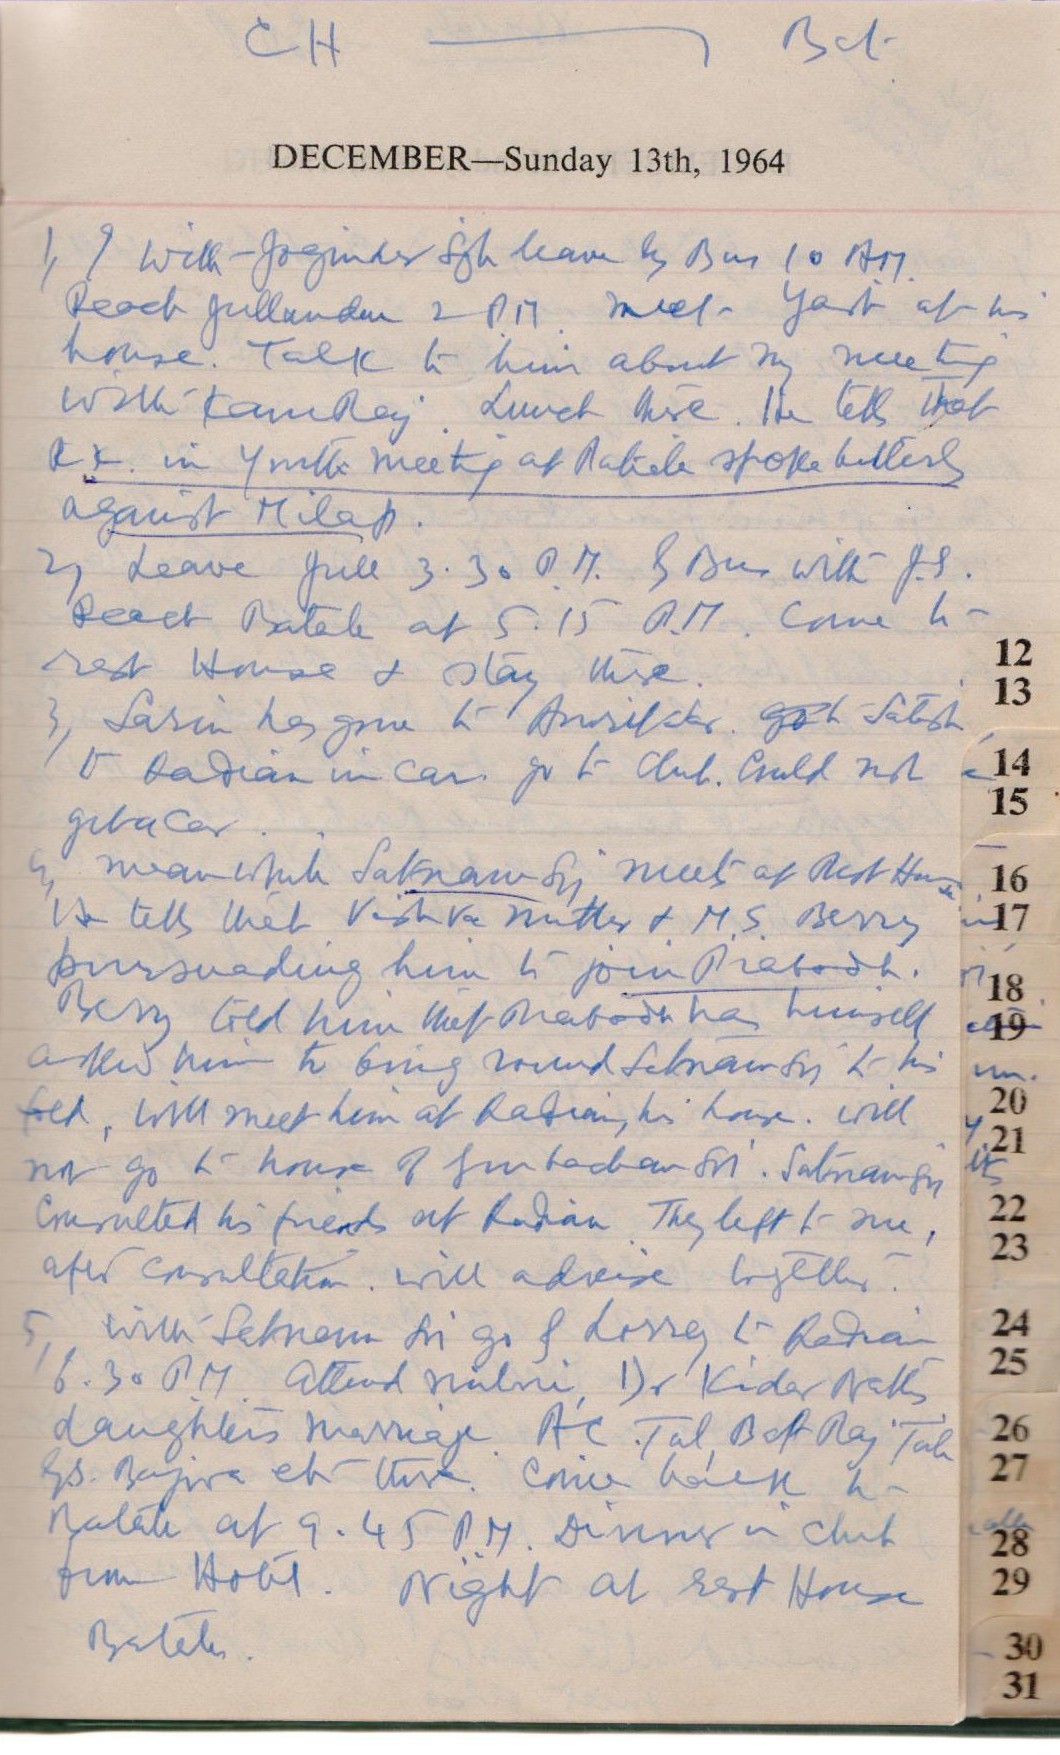 CH — Bat.
DECEMBER—Sunday 13th, 1964
1, I with Joginder Sgh leave by Bus 10 AM.
Reach Jullundur 2 PM. meet Yash at his
house. Talk to him about my meeting
with KamRaj. Lunch there. He tells that
R.K. in Youth meeting at Batala spoke bitterly
against Milap.
2, Leave Jull 3.30 P.M. by Bus with J.S.
Reach Batala at 5.15 P.M. Come to
rest House & stay there.
3, Sarin has gone to Amritsar. Satish
to Qadian in car. go to Club. Could not
get a Car.
4, meanwhile Satnam Sgh meets at Rest House
He tells that Vishva Mitter & M.S. Berry
pursuading him to join Prabodh.
Berry told him that Prabodh has himself
asked him to bring round Satnam Sgh to his
fold, will meet him at Qadian, his house. Will
not go to house of Gurbachan Sgh. Satnam Sgh
Consulted his friends at Qadian. They left to me,
after consultation. will advise together.
5, with Satnam Sgh go by Lorrey to Qadian
6.30 P.M. Attend milni, Dr Kidar Nath's
daughter's marriage. Raj
G.S. Bajwa etc there. Come back to
Batala at 9.45 P.M. Dinner in Club
from Hotel. Night at rest House
Batala.
12
13
14
15
16
17
18
19
20
21
22
23
24
25
26
27
28
29
30
31